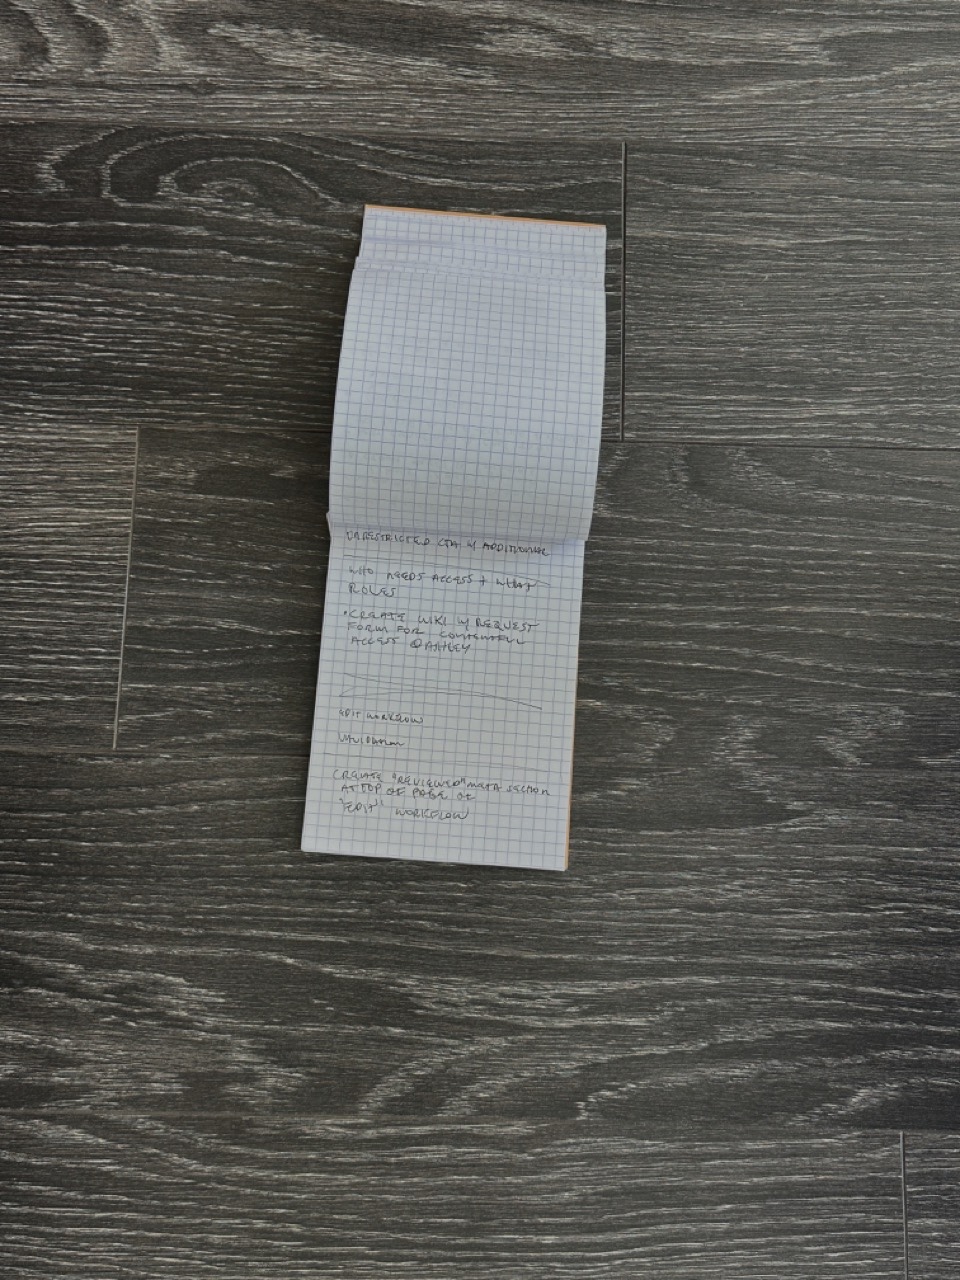 UNRESTRICTED CTA W/ ADDITIONAL
WHO NEEDS ACCESS + WHAT
ROLES
• CREATE WIKI W/ REQUEST
FORM FOR CONTENTFUL
ACCESS @ASHLEY
EDIT WORKFLOW
CREATE "REVIEWED" META SECTION
AT TOP OF PAGE OF
"EDIT" WORKFLOW